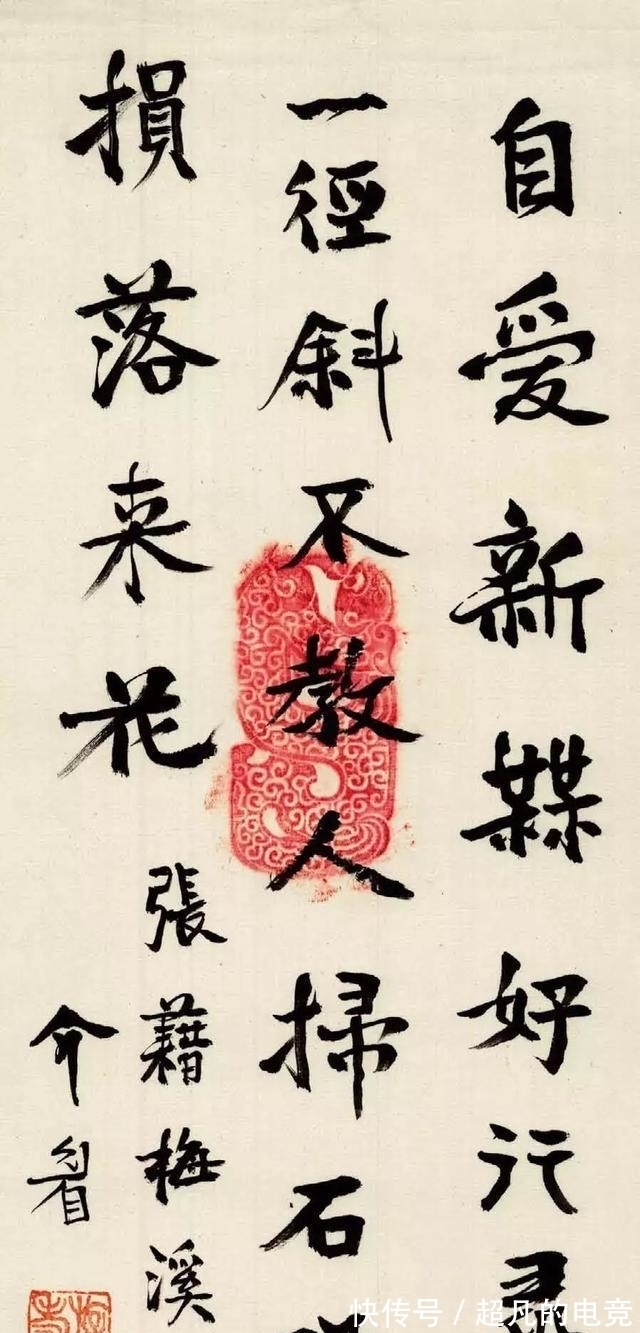 自愛新槑好行
一徑斜不教人掃石
損落来花
張藉梅溪
介
快传号 / 超凡的电竞